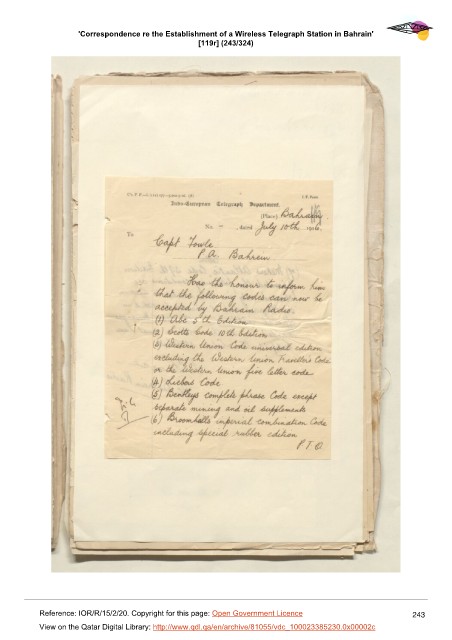 'Correspondence re the Establishment of a Wireless Telegraph Station in Bahrain'
[119r] (243/324)
Indo-European Telegraph Department.
(Place) Bahrain
No. - dated July 10th 191
To
Capt Fowle
P A. Bahrein
Has the honour to inform him
that the following codes can now be
accepted by Bahrain Radio.
(1) Abc 5th Edition
(2) Scotts Code 10th Edition
(3) Western Union Code universal edition
excluding the Western Union Travellers Code
or the Western Union five letter code
(4) Liebers Code
(5) Bentleys complete phrase Code except
separate mining and oil supplements
(6) Broomhalls imperial combination Code
including special rubber edition
P.T.O.
Reference: IOR/R/15/2/20. Copyright for this page: Open Government Licence
View on the Qatar Digital Library: http://www.qdl.qa/en/archive/81055/vdc_100023385230.0x00002c
243